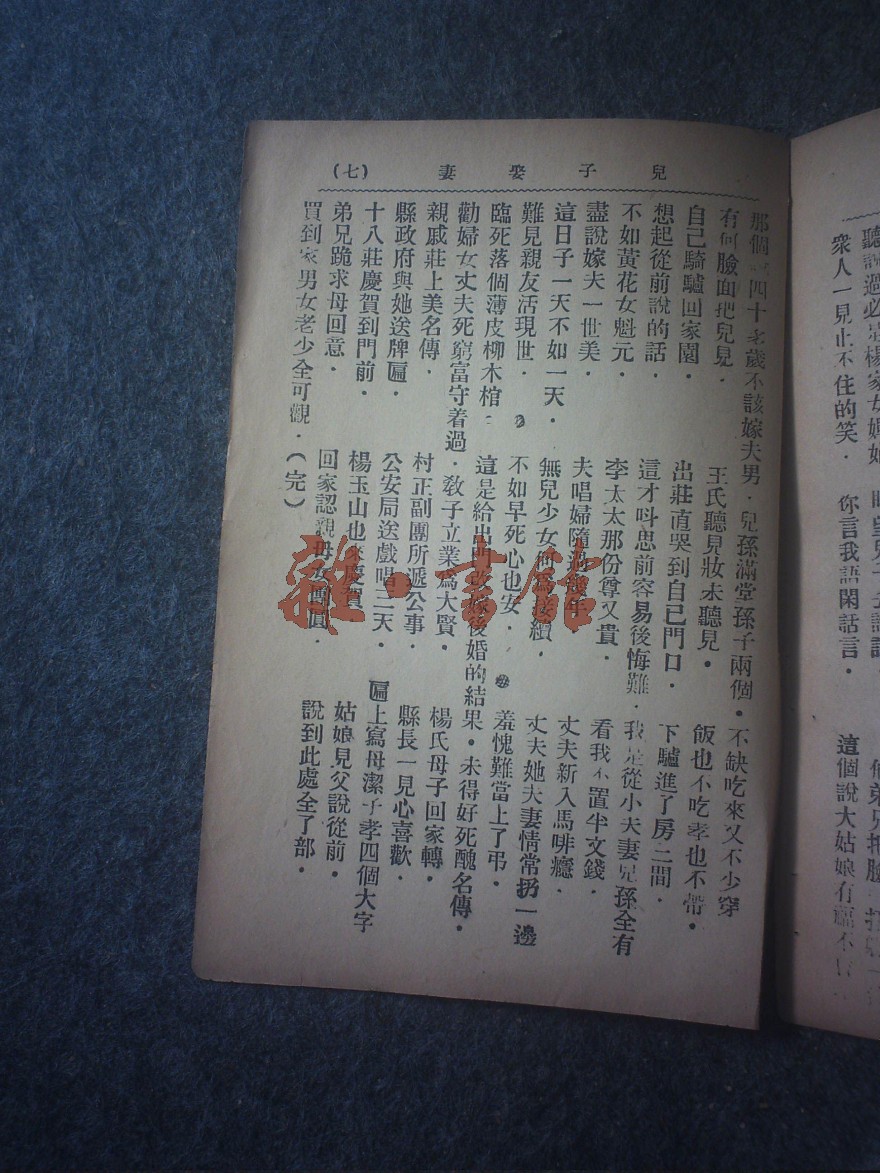 兒子娶妻 (七)
那個 四十老歲不該嫁夫男．兒孫滿堂孫子兩個．不缺吃來又不少穿
有何臉面把兒見．王氏聽見妝未聽見．飯也不吃孝也不帶．
自己騎驢回家園．出莊直哭到自己門口．下驢進了房二間．
想起從前說的話．這才呌思前容易後悔難．我是從小夫妻兒孫全有
不如黃花女魁元．李太太那份尊又貴．看我不置半文錢．
盡說嫁夫一世美．夫唱婦隨過幾年．丈夫新入馬啡癮．
這日子一天不如一天．無兒少女何為接續．丈夫她夫妻情常扔一邊
難見親友活現世．不如早死心也安．羞愧難當上了弔．
臨死落個薄皮柳木棺．這是給出門改嫁後婚的結果．未得好死醜名傳．
勸婦女丈夫死窮富守着過．敎子立業爲大賢．楊氏母子回家轉．
親戚莊上美名傳．村正副團所遞公事．縣長一見心喜歡．
縣政府與她送牌匾．公安局送戲唱二天．匾上寫母潔子孝四個大字
十八莊慶賀到門前．楊玉山也來慶賀．姑娘見父說從前．
弟兄跪求母回意．回家認親母女團圓．說到此處全了部．
買到家男女老少全可觀．(完)
衆人一見止不住的笑．你言我語閑話言．這個說大姑娘有福不
雜·書館